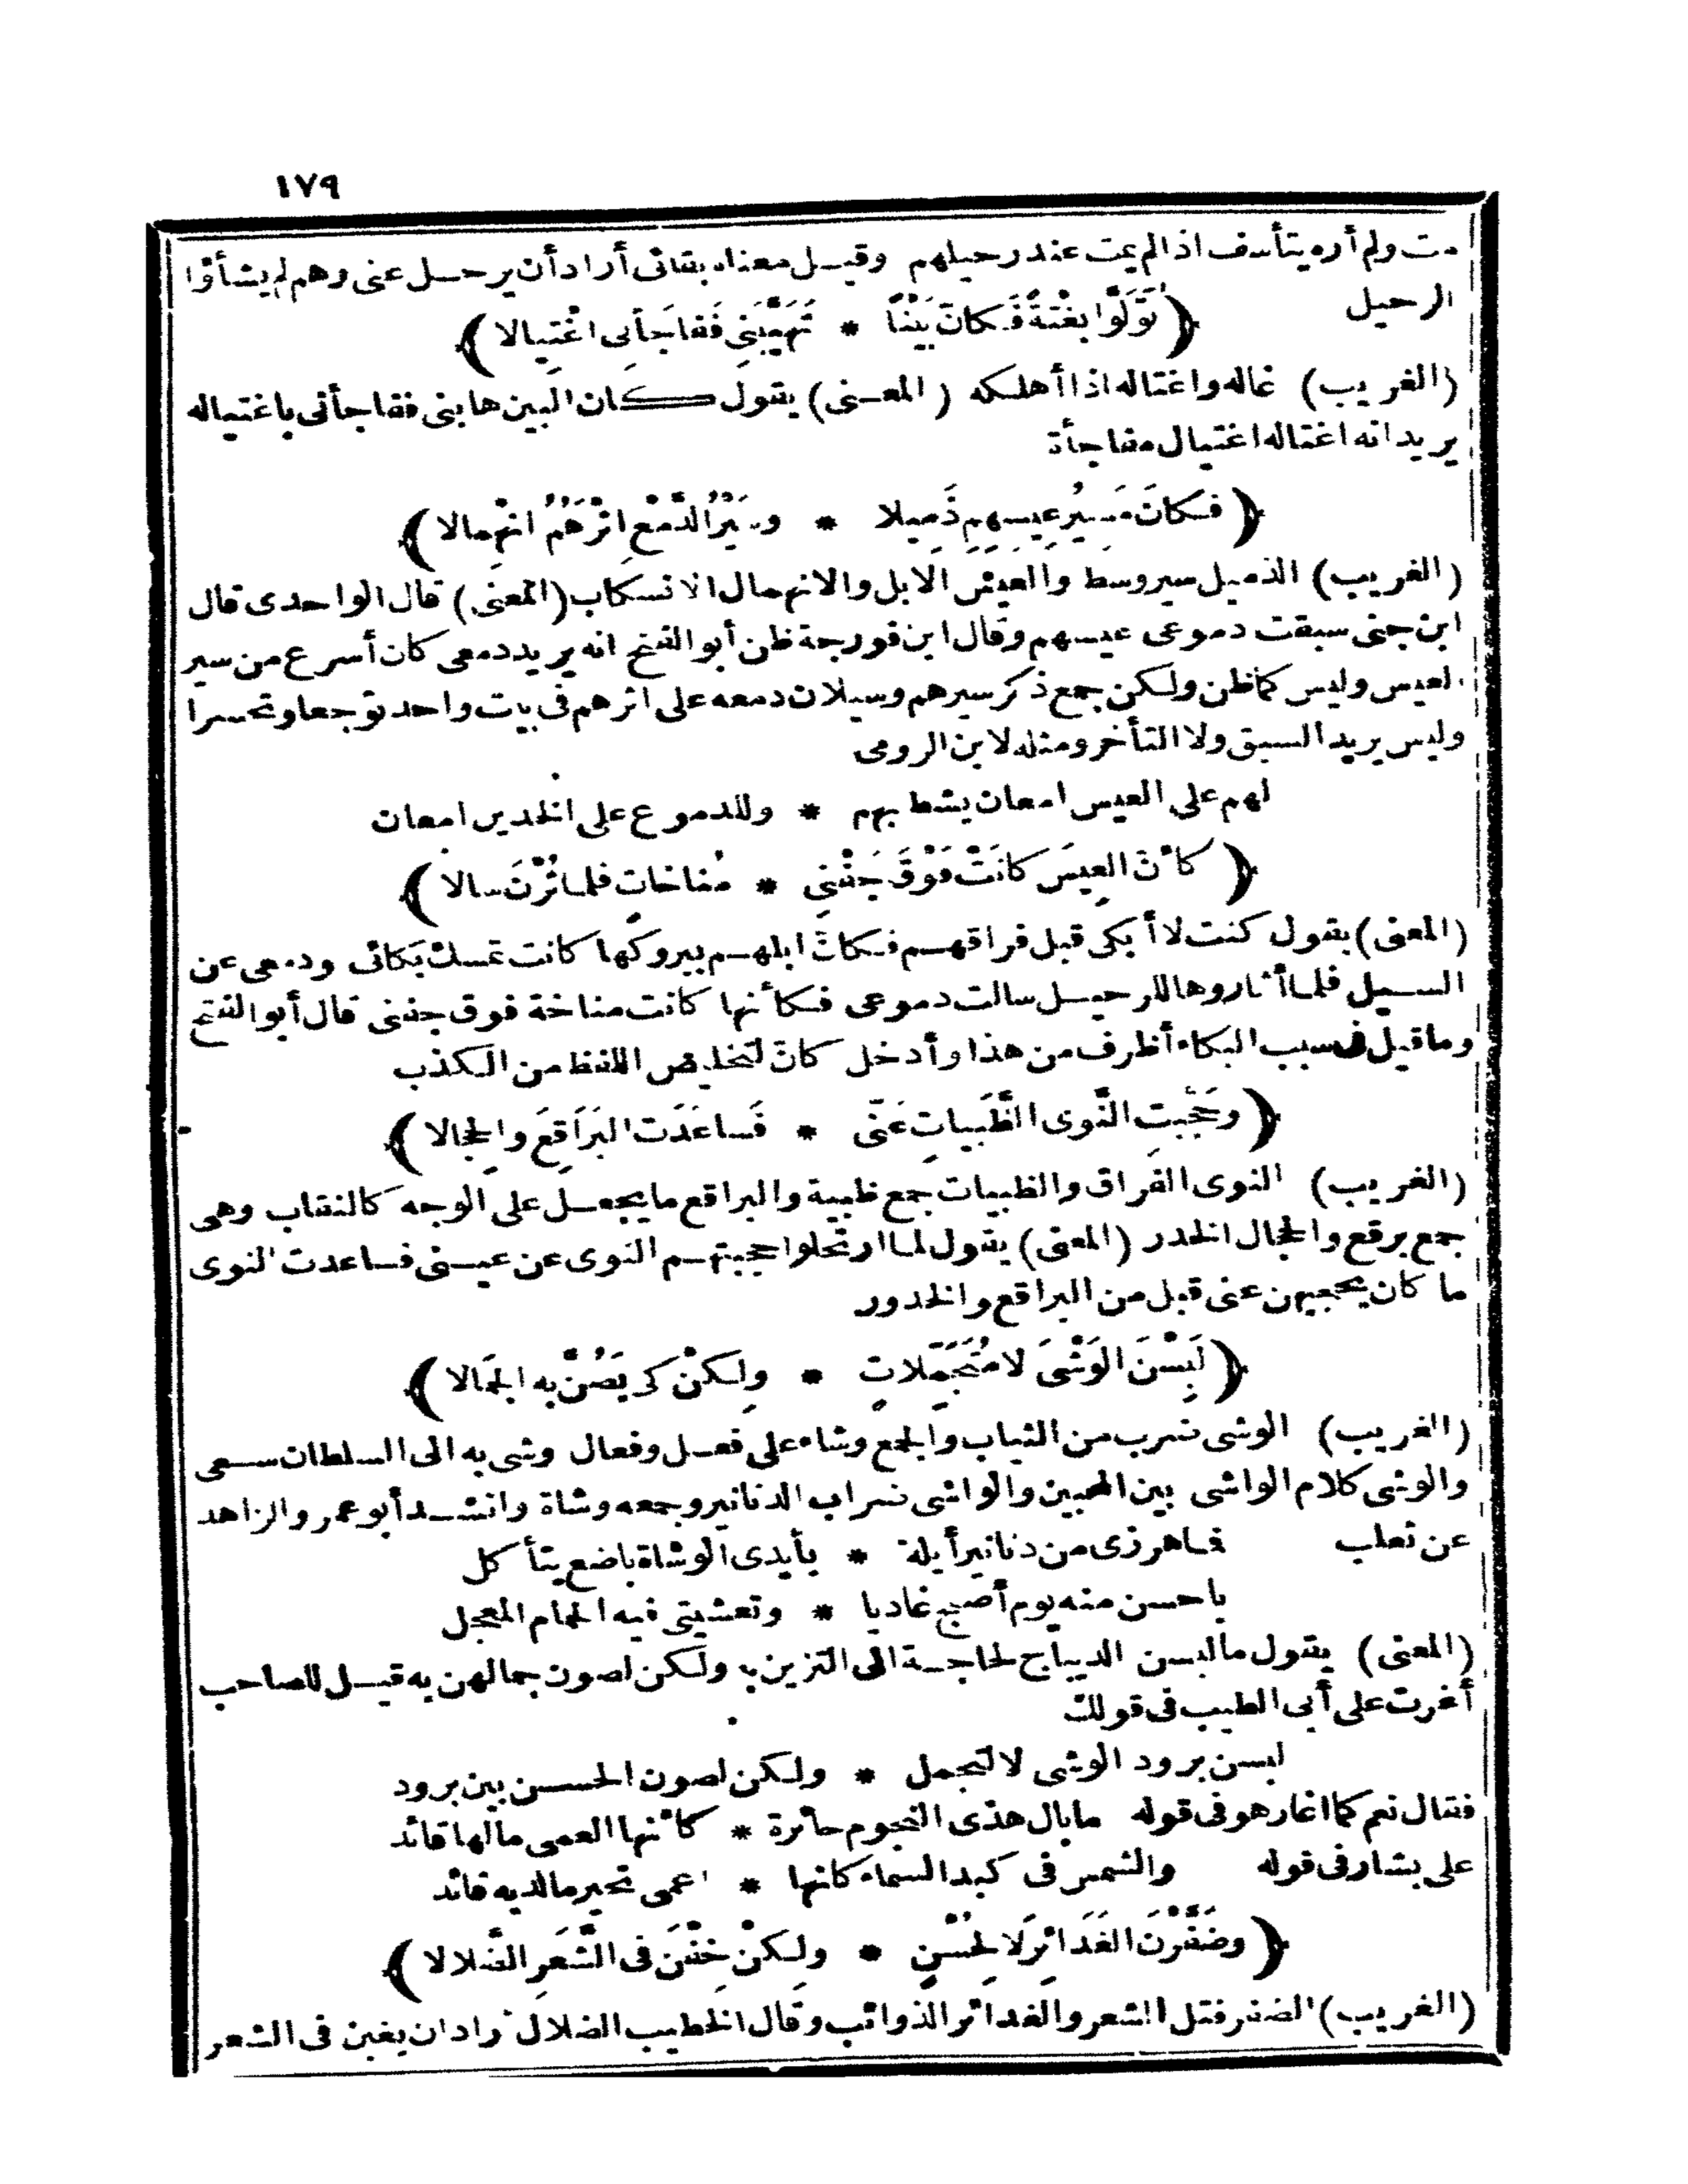 ١٧٩
مت ولم أره يتأسف اذ الم يمت عند رحيلهم وقيل معناه بقائى أراد أن يرحل عنى وهم لم يشاؤا
الرحيل
﴿تَوَلَّوْا بَغْتَةً فَكَانَ بَيْنًا * تَهَيَّبَنِى فَفاجَأَنِى اغْتِيالا﴾
(الغريب) غاله واغتاله اذا أهلكه (المعنى) يقول كان البين هابنى ففاجأنى باغتياله
يريد انه اغتاله اغتيال مفاجأة
﴿فكانَ مَسِيرُ عِيسِهِمِ ذَمِيلا * وسَيْرُ الدَّمْعِ اثْرَهُمُ انْهِمالا﴾
(الغريب) الذميل سير وسط والعيس الابل والانهمال الانسكاب (المعنى) قال الواحدى قال
ابن جنى سبقت دموعى عيسهم وقال ابن فورجة ظن أبو الفتح انه يريد دمعى كان أسرع من سير
العيس وليس كما ظن ولكن جمع ذكر سيرهم وسيلان دمعه على اثرهم فى بيت واحد توجعا وتحسرا
وليس يريد السبق ولا التأخر ومثله لابن الرومى
لهم على العيس امعان يشط بهم * وللدموع على الخدين امعان
﴿كأنَّ العِيسَ كانَتْ فَوْقَ جَفْنِى * مُناخاتٍ فلما ثُرْنَ سالا﴾
(المعنى) يقول كنت لا أبكى قبل فراقهم فكأن ابلهم ببروكها كانت تمسك بكائى ودمعى عن
السيل فلما أثاروها للرحيل سالت دموعى فكأنها كانت مناخة فوق جفنى قال أبو الفتح
وما قيل فى سبب البكاء أظرف من هذا وأدخل كأن لتخليص اللفظ من الكذب
﴿وحَجَّبَتِ النَّوَى الظَّبَياتِ عَنِّى * فَساعَدَتِ البَرَاقِعَ والحِجالا﴾
(الغريب) النوى الفراق والظبيات جمع ظبية والبراقع ما يجعل على الوجه كالنقاب وهى
جمع برقع والحجال الخدر (المعنى) يقول لما ارتحلوا حجبتهم النوى عن عينى فساعدت النوى
ما كان يحجبهن عنى قبل من البراقع والخدور
﴿لَبِسْنَ الوَشْىَ لا مُتَجَمِّلاتٍ * ولكنْ كى يَصُنَّ به الجَمالا﴾
(الغريب) الوشى ضرب من الثياب والجمع وشاء على فعل وفعال وشى به الى السلطان سعى
والوشى كلام الواشى بين المحبين والواشى ضراب الدنانير وجمعه وشاة وانشد أبو عمر والزاهد
عن ثعلب فما هرزى من دنانير أيلة * بأيدى الوشاة ناصع يتأكل
باحسن منه يوم أصبح غاديا * وتعشيتى فيه الحمام المعجل
(المعنى) يقول ما لبسن الديباج لحاجة الى التزين به ولكن لصون جمالهن به قيل للصاحب
أغرت على أبى الطيب فى قولك
لبسن برود الوشى لا لتجمل * ولكن لصون الحسن بين برود
فقال نعم كما اغار هو فى قوله مابال هذى النجوم حائرة * كأنها العمى مالها قائد
على بشار فى قوله والشمس فى كبد السماء كانها * اعمى تحير مالديه قائد
﴿وضَفَّرْنَ الغَدَائِرَ لَا لِحُسْنٍ * ولكنْ خِفْنَ فى الشَّعَرِ الضَّلالا﴾
(الغريب) الضفر فتل الشعر والغدائر الذوائب وقال الخطيب الضلال اراد ان يغبن فى الشعر